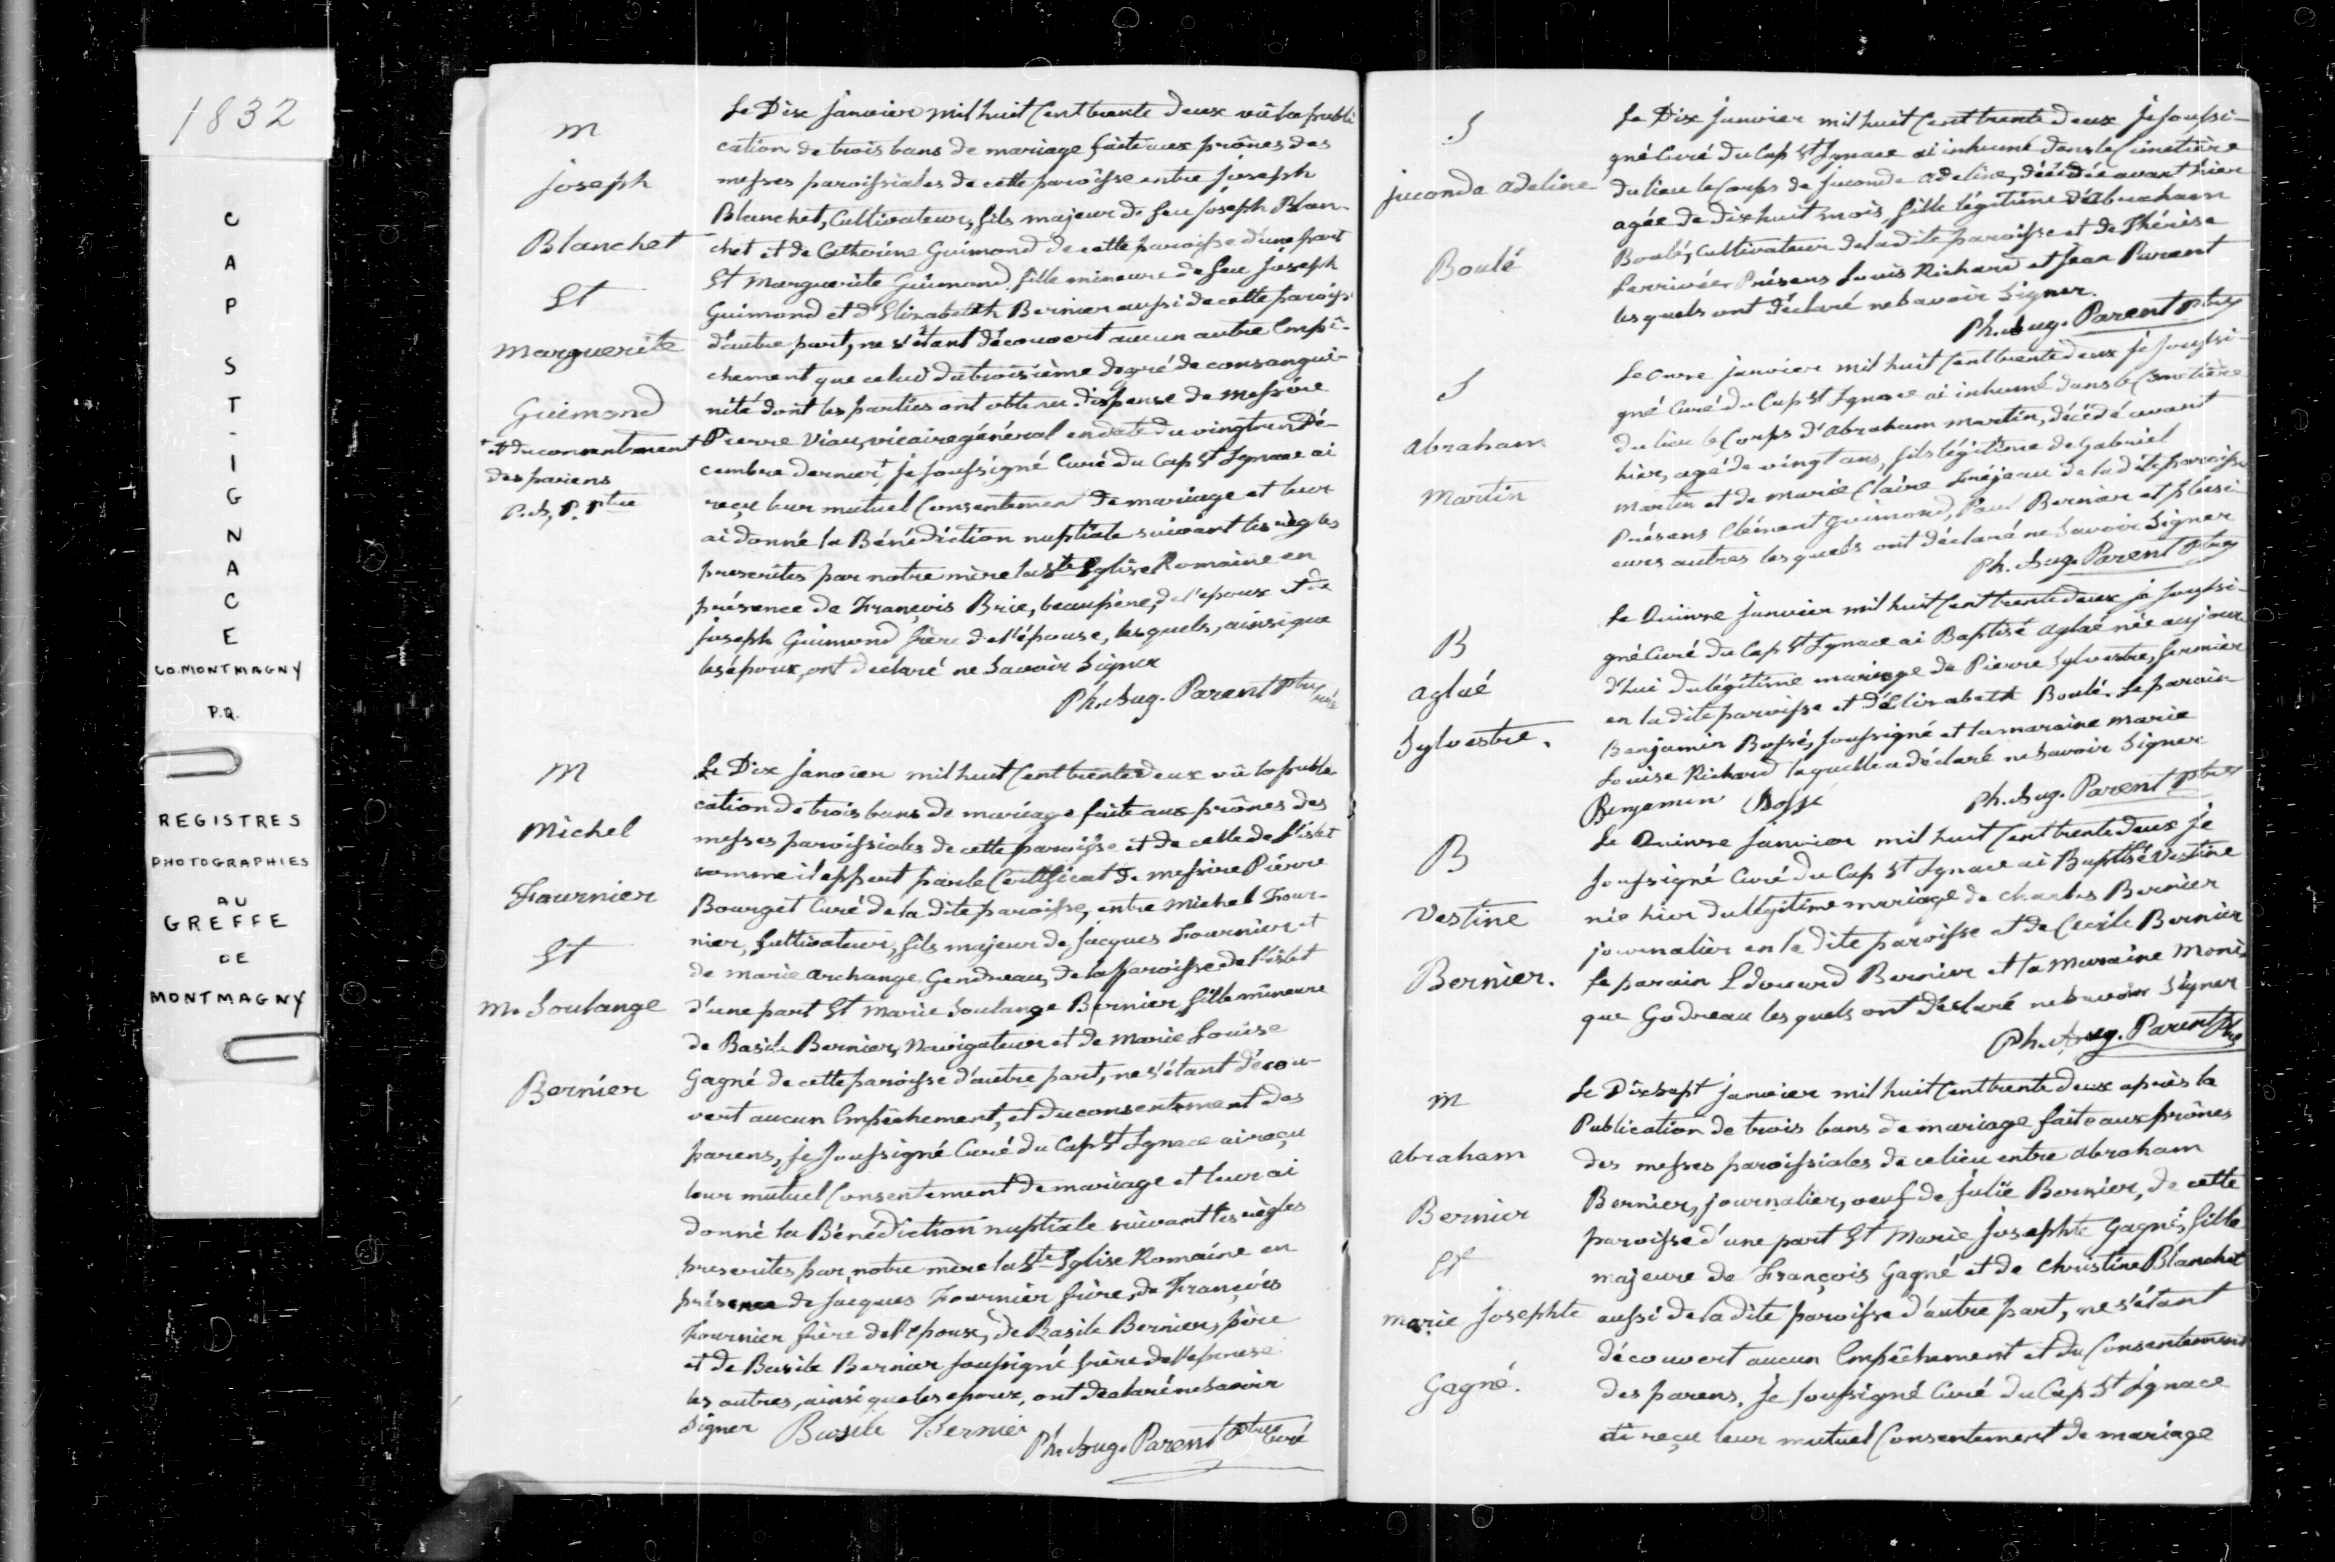 1832
CAP ST-IGNACE
CO. MONTMAGNY
P.Q.
REGISTRES
PHOTOGRAPHIES
AU
GREFFE
DE
MONTMAGNY
M
Joseph
Blanchet
Et
Marguerite
Guimond
+ et du consentement
des parens
P.A.P. Ptre
Le Dix Janvier mil huit Cent trente deux vû la publi
cation de trois bans de mariage faite aux prônes des
messes paroissiales de cette paroisse entre Joseph
Blanchet, Cultivateur, fils majeur de feu Joseph Blan-
chet et de Catherine Guimond de cette paroisse d'une part
Et Marguerite Guimond fille mineure de feu Joseph
Guimond et d'Elisabeth Bernier aussi de cette paroisse
d'autre part, ne s'étant découvert aucun autre Empê-
chement que celui du troisième degré de consangui-
nité dont les parties ont obtenu dispense de Messire
Pierre Viau, vicaire général en date du vingt un Dé-
cembre dernier + Je soussigné Curé du Cap St Ignace ai
reçu leur mutuel Consentement de mariage et leur
ai donné la Bénédiction nuptiale suivant les règles
prescrites par notre mère la Ste Eglise Romaine en
présence de François Brie, beaupère, de l'epoux et de
Joseph Guimond frère de l'épouse, lesquels, ainsi que
les époux, ont declaré ne Savoir Signer
Ph. Aug. Parent Ptre Curé
M
Michel
Fournier
Et
M. Soulange
Bernier
Le Dix Janvier mil huit Cent trente deux vû la publi
cation de trois bans de mariage faite aux prônes des
messes paroissiales de cette paroisse et de celle de l'islet
comme il appert par le Certificat de messire Pierre
Bourget Curé de la dite paroisse, entre Michel Four-
nier, Cultivateur, fils majeur de Jacques Fournier et
de marie archange Gendreau, de la paroisse de l'islet
d'une part Et Marie Soulange Bernier fille mineure
de Basile Bernier, Navigateur et de Marie Louise
Gagné de cette paroisse d'autre part, ne s'étant décou-
vert aucun Empêchement, et du consentement des
parens, je soussigné Curé du Cap St Ignace ai reçu
leur mutuel Consentement de mariage et leur ai
donné la Bénédiction nuptiale suivant les règles
prescrites par notre mère la Ste Eglise Romaine en
présence de Jacques Fournier frère, de François
Fournier frère de l'epoux, de Basile Bernier, père
et de Basile Bernier soussigné frère de l'epouse
les autres, ainsi que les epoux, ont declaré ne Savoir
Signer Basile Bernier
Ph. Aug. Parent Ptre Curé
S
Juconde Adeline
Boulé
Le Dix Janvier mil huit Cent trente deux Je soussi-
gné Curé du Cap St Ignace ai inhumé dans le Cimetière
du lieu le Corps de Juconde Adeline, décédée avant hier
agée de dix huit mois fille légitime d'Abraham
Boulé, cultivateur de la dite paroisse et de Thérèse
Larrivée. Présens Louis Richard et Jean Parent
lesquels ont déclaré ne Savoir Signer.
Ph. Aug. Parent Ptre
S
Abraham
Martin
Le Onze janvier mil huit Cent trente deux Je soussi-
gné Curé du Cap St Ignace ai inhumé dans le Cimetière
du lieu le Corps d'Abraham Martin, décédé avant
hier, agé de vingt ans, fils légitime de Gabriel
Martin et de Marie Claire de la dite paroisse
Présens Clément Guimond, Paul Bernier et plusi-
eurs autres lesquels ont déclaré ne Savoir Signer
Ph. Aug. Parent Ptre
B
Aglaé
Sylvestre.
Le Quinze Janvier mil huit Cent trente deux je soussi-
gné Curé du Cap St Ignace ai Baptisé Aglaé née aujour-
d'hui du légitime mariage de Pierre Sylvestre, fermier
en la dite paroisse et d'Elisabeth Boulé. Le parain
Benjamin Bossé, soussigné et la maraine Marie
Louise Richard laquelle a déclaré ne Savoir Signer
Benjamin Bossé
Ph. Aug. Parent Ptre
B
Vestine
Bernier.
Le Quinze Janvier mil huit Cent trente deux je
soussigné Curé du Cap St Ignace ai Baptisé Vestine
née hier du légitime mariage de Charles Bernier
journalier en la dite paroisse et de Cecile Bernier
Le parain Edouard Bernier et la Maraine Moni-
que Godreau lesquels ont déclaré ne Savoir Signer
Ph. Aug. Parent Ptre
M
Abraham
Bernier
Et
Marie Josephte
Gagné.
Le Dix sept Janvier mil huit Cent trente deux après la
Publication de trois bans de mariage faite aux prônes
des messes paroissiales de ce lieu entre Abraham
Bernier, journalier, veuf de Julie Bernier, de cette
paroisse d'une part Et Marie Josephte Gagné, fille
majeure de François Gagné et de Christine Blanchet
aussi de la dite paroisse d'autre part, ne s'étant
découvert aucun Empêchement et du Consentement
des parens, Je soussigné Curé du Cap St Ignace
ai reçu leur mutuel Consentement de mariage